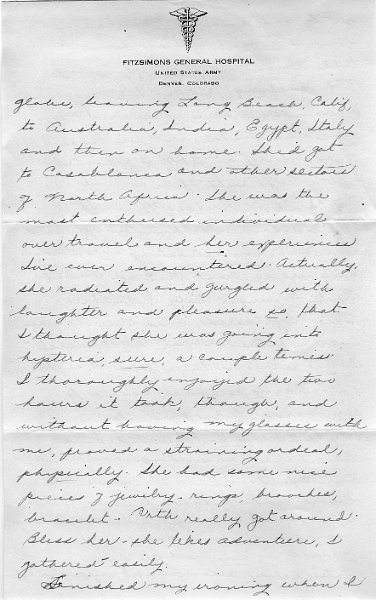 FITZSIMONS GENERAL HOSPITAL
UNITED STATES ARMY
DENVER, COLORADO
globe, leaving Long Beach, Calif,
to Australia, India, Egypt, Italy
and then on home. She'd got
to Casablanca and other sectors
of North Africa. She was the
most enthused individual
over travel and her experiences
I've ever encountered. Actually,
she radiated and gurgled with
laughter and pleasure so, that
I thought she was going into
hysteria, sure, a couple times.
I thoroughly enjoyed the two
hours it took, though, and
without having my glasses with
me, proved a straining ordeal,
physically. She had some nice
pieces of jewelry - rings, brooches,
bracelet. really got around.
Bless her - she likes adventure, I
gathered easily.
Finished my ironing when I